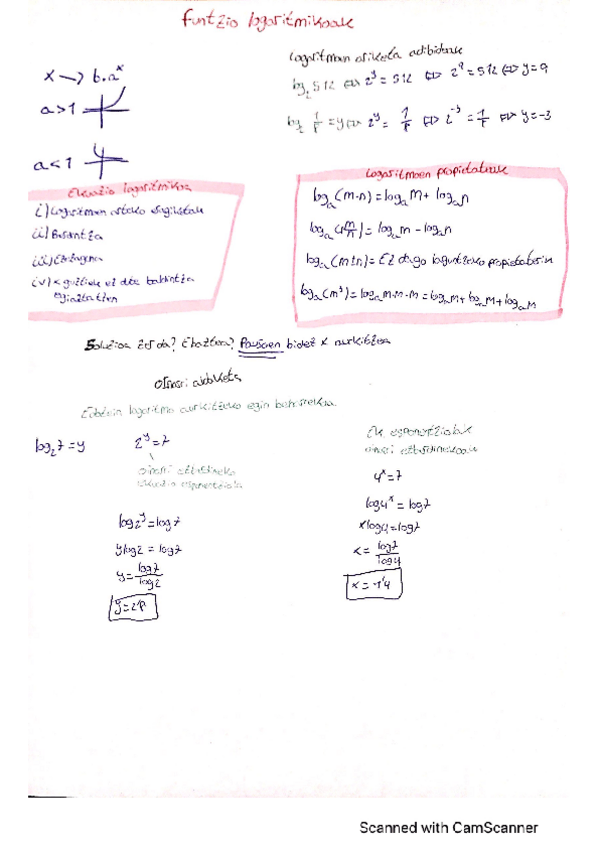 Funtzio logaritmikoak
x → b·aˣ
a>1
a<1
Logaritmoen ariketa adibideak
log₂ 512 ⇔ 2ʸ = 512 ⇔ 2⁹ = 512 ⇔ y=9
log₂ 1/8 = y ⇔ 2ʸ = 1/8 ⇔ 2⁻³ = 1/8 ⇔ y=-3
Ekuazio logaritmikoa
i) Logaritmoen
ii) Berdintza
iii) Ebazpena
iv) x guztiek ez dute baldintza
egiaztatzen
Logaritmoen propietateak
logₐ(m·n) = logₐ m + logₐ n
logₐ(m/n) = logₐ m - logₐ n
logₐ(m±n) = Ez dago laguntzeko propietaterik
logₐ(m³) = logₐ m·m·m = logₐ m + logₐ m + logₐ m
Soluzioa zer da? Ebaztera? Pausoen bidez x aurkitzea
Oinarri aldaketa
Edozein logaritmo aurkitzeko egin beharrekoa
log₂7 = y
2ʸ = 7
oinarri ezberdineko
ekuazio esponentziala
log2ʸ = log7
ylog2 = log7
y = log7/log2
y = 2'8
Ek. esponentzialak
oinarri ezberdinekoak
4ˣ = 7
log4ˣ = log7
xlog4 = log7
x = log7/log4
x = 1'4
Scanned with CamScanner